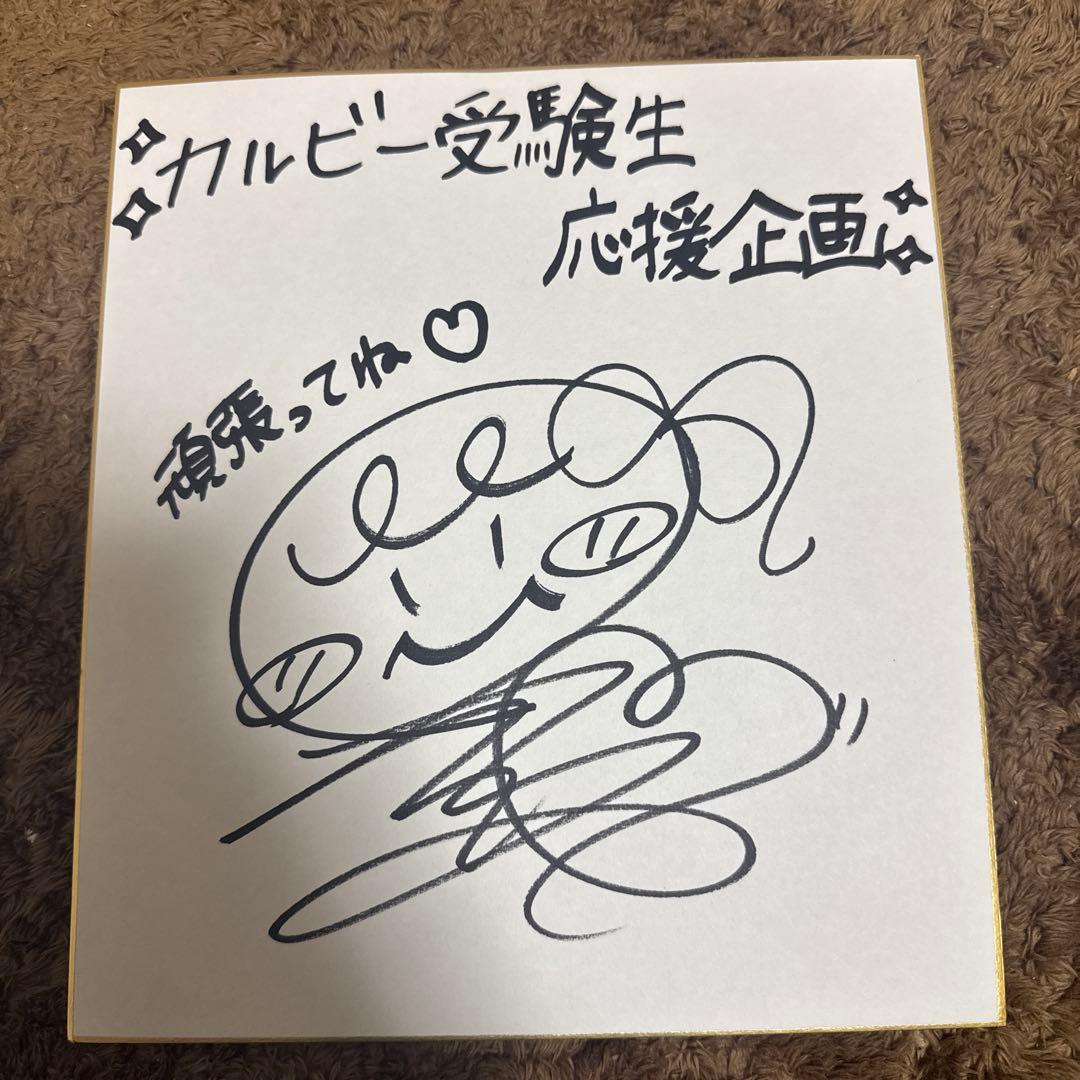 カルビー受験生
応援企画
頑張ってね♡